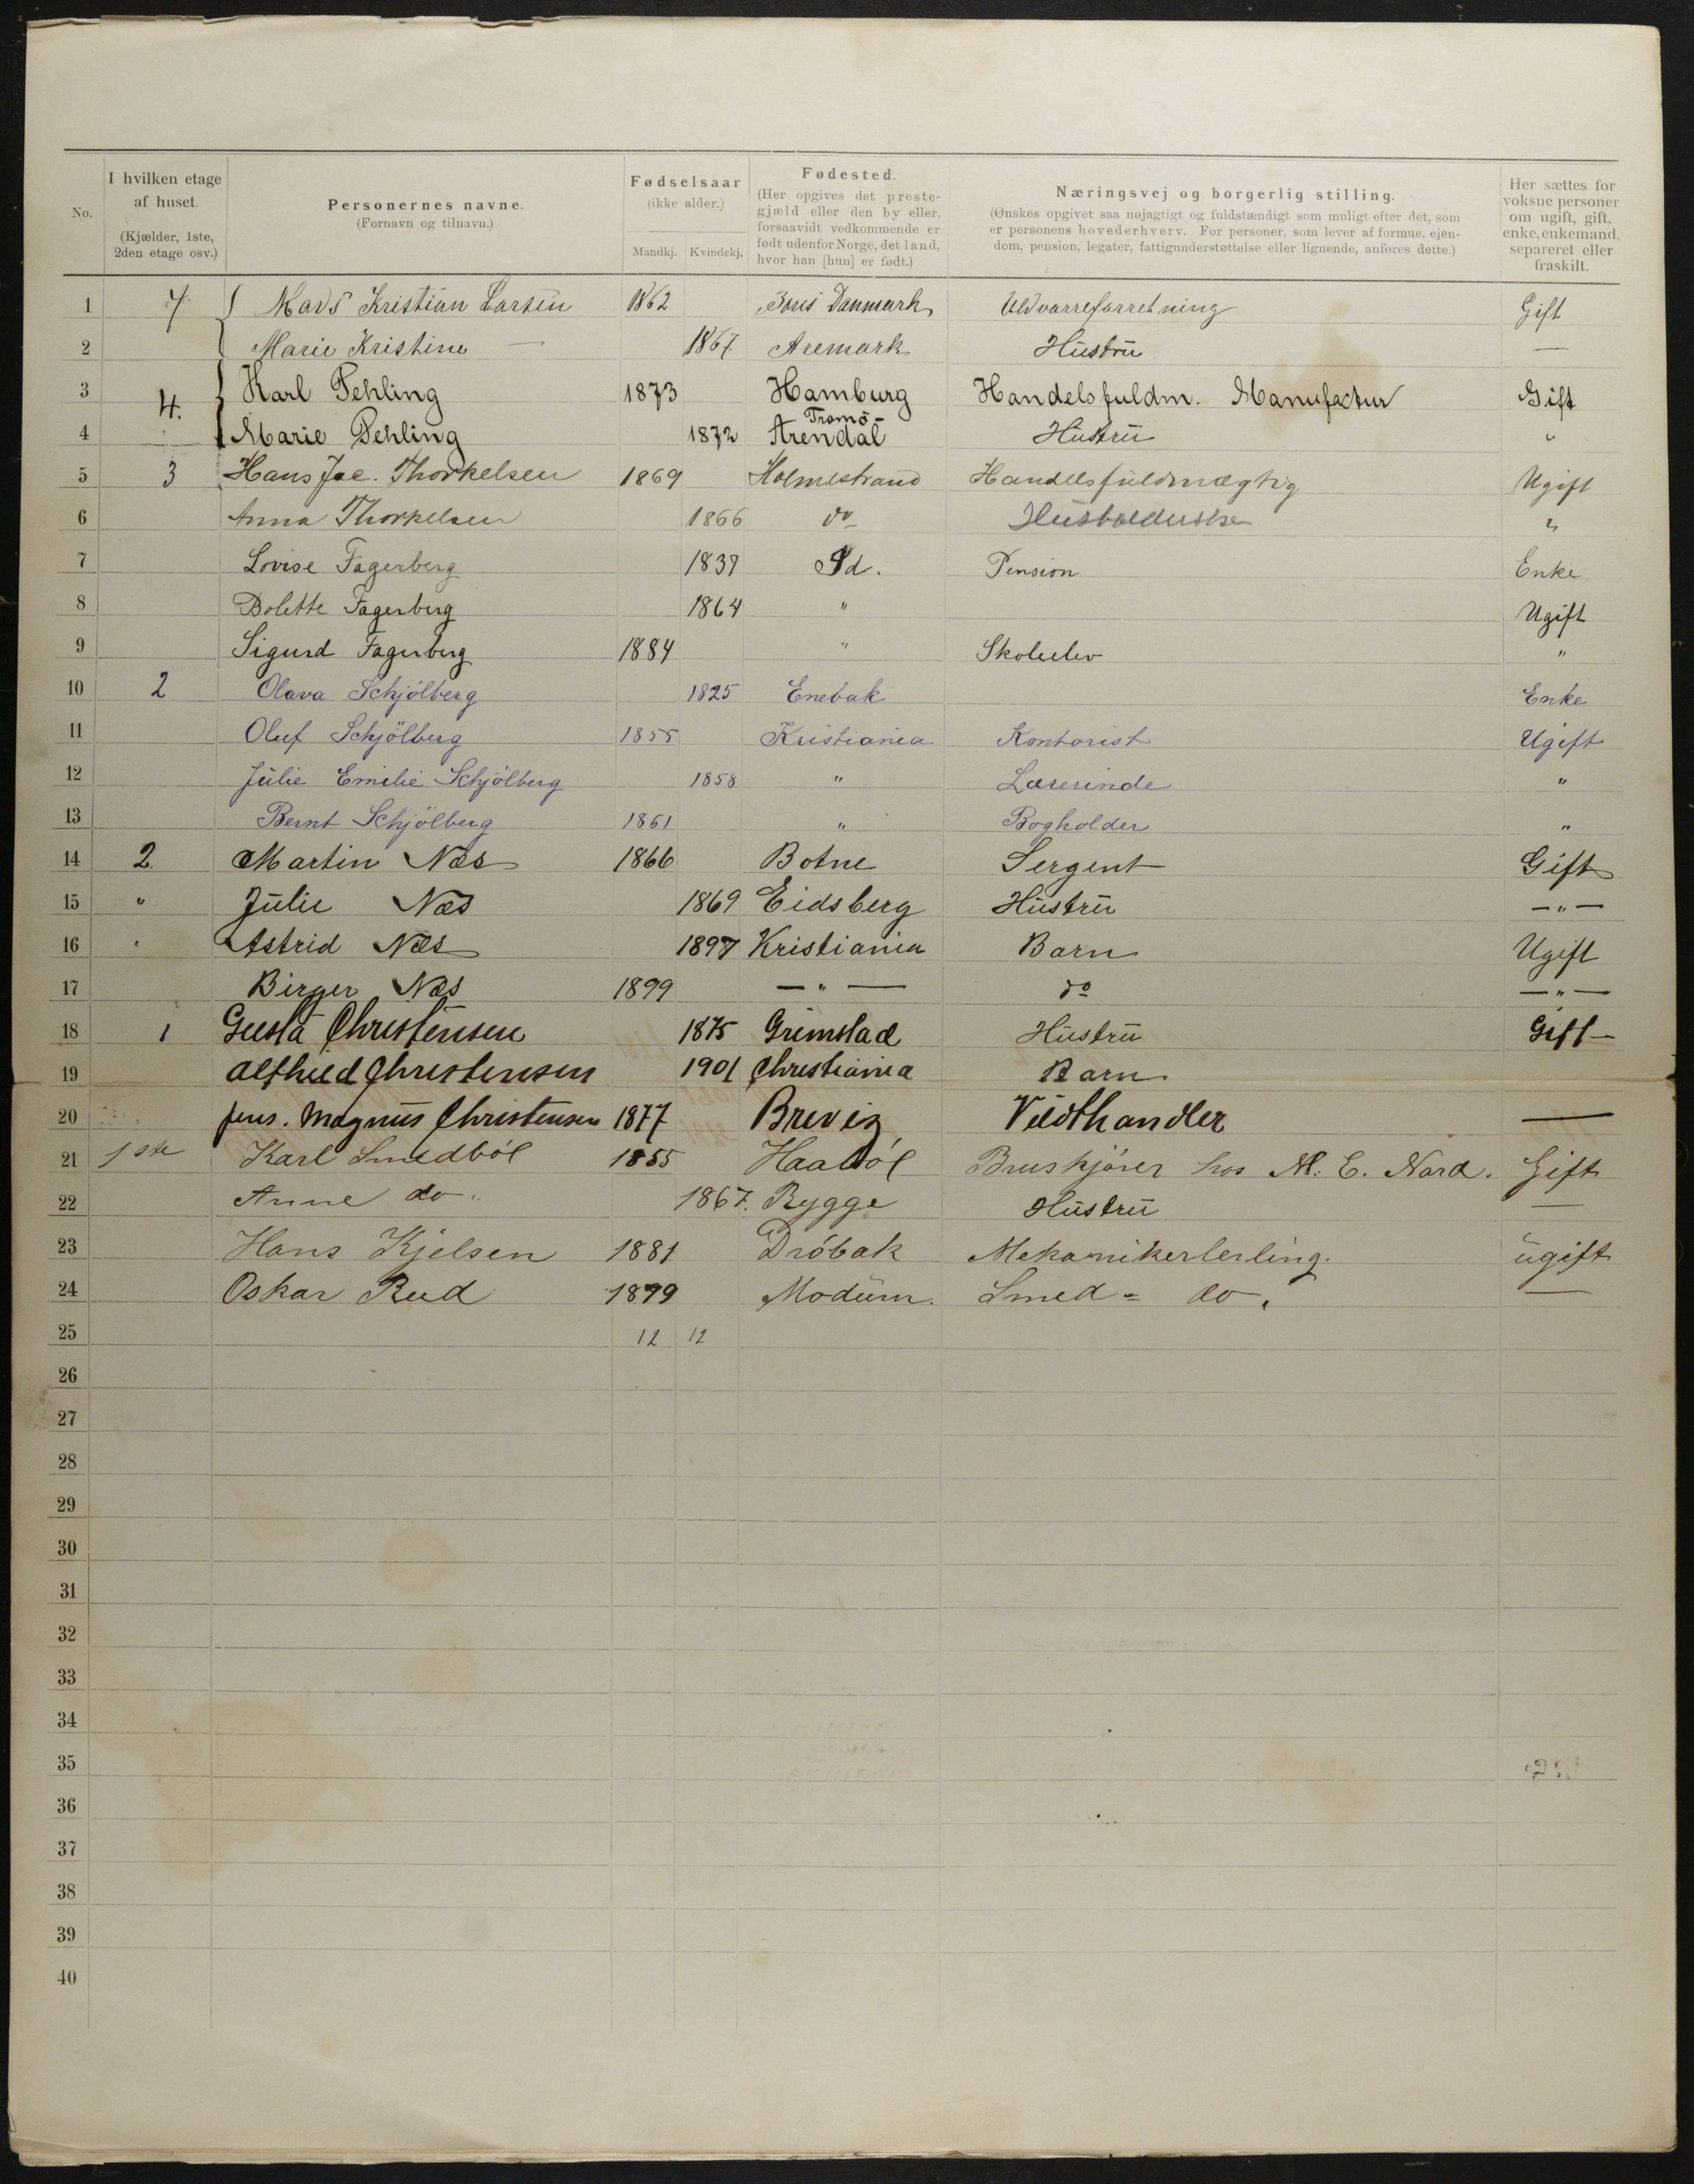 No.
I hvilken etage af huset. (Kjælder, 1ste, 2den etage osv.)
Personernes navne. (Fornavn og tilnavn.)
Fødselsaar (ikke alder.)
Mandkj. Kvindekj.
Fødested. (Her opgives det prestegjæld eller den by eller, forsaavidt vedkommende er født udenfor Norge, det land, hvor han [hun] er født.)
Næringsvej og borgerlig stilling. (Ønskes opgivet saa nøjagtigt og fuldstændigt som muligt efter det, som er personens hovederhverv. For personer, som lever af formue, ejendom, pension, legater, fattigunderstøttelse eller lignende, anføres dette.)
Her sættes for voksne personer om ugift, gift, enke, enkemand, separeret eller fraskilt.
1 4 Mads Kristian Larsen 1862 Danmark Uldvarreforretning Gift
2 Marie Kristine — 1867 Aremark Hustru —
3 4. Karl Pehling 1873 Hamburg Handelsfuldm. Manufactur Gift
4 Marie Pehling 1872 Tromö- Arendal Hustru "
5 3 Hans Jac. Thorkelsen 1869 Holmestrand Handelsfuldmægtig Ugift
6 Anna Thorkelsen 1866 do Husholderske "
7 Lovise Fagerberg 1837 Id. Pension Enke
8 Bolette Fagerberg 1864 " Ugift
9 Sigurd Fagerberg 1884 " Skoleelev "
10 2 Olava Schjölberg 1825 Enebak Enke
11 Oluf Schjölberg 1855 Kristiania Kontorist Ugift
12 Julie Emilie Schjölberg 1858 " Lærerinde "
13 Bernt Schjölberg 1861 " Bogholder "
14 2 Martin Næs 1866 Botne Sergent Gift
15 " Julie Næs 1869 Eidsberg Hustru — " —
16 " Astrid Næs 1897 Kristiania Barn Ugift
17 Birger Næs 1899 — " — do — " —
18 1 Gusta Christensen 1875 Grimstad Hustru Gift
19 Alfhild Christensen 1901 Christiania Barn
20 Jens. Magnus Christensen 1877 Brevig Vedthandler —
21 1ste Karl Smedböl 1855 Haaböl Bruskjörer hos M. E. Nord. Gift
22 Anne do. 1867. Rygge Hustru —
23 Hans Kjelsen 1881 Dröbak Mekanikerlerling. ugift
24 Oskar Rud 1899 Modum. Smed = do. —
25 12 12
26
27
28
29
30
31
32
33
34
35
36
37
38
39
40